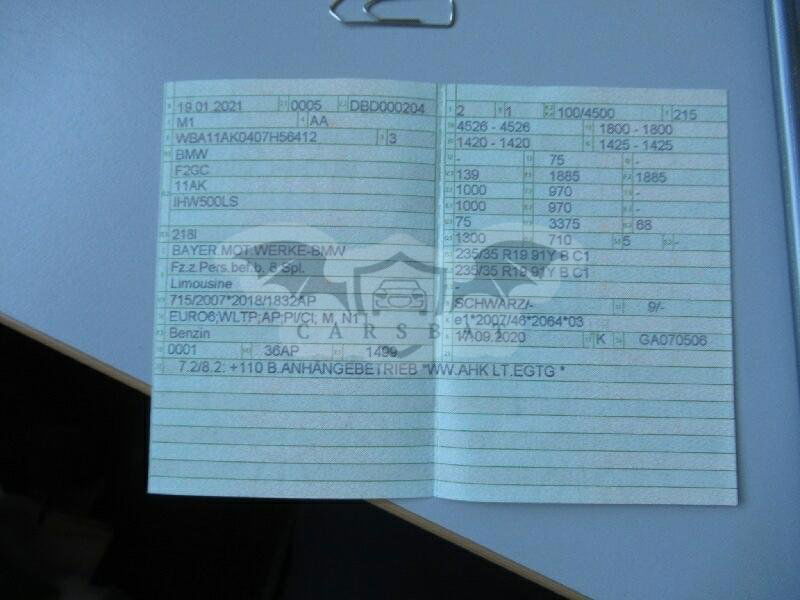 19.01.2021 0005 DBD000204
M1 AA
WBA11AK0407H56412 3
BMW
F2GC
11AK
IHW500LS
218I
BAYER.MOT.WERKE-BMW
Fz.z.Pers.bef.b. 8 Spl.
Limousine
715/2007*2018/1832AP
EURO6;WLTP;AP;PI/CI, M, N1
Benzin
0001 36AP 1499
7.2/8.2: +110 B.ANHÄNGEBETRIEB *WW.AHK LT.EGTG *
2 1 100/4500 215
4526 - 4526 1800 - 1800
1420 - 1420 1425 - 1425
- 75 -
139 1885 1885
1000 970 -
1000 970 -
75 3375 68
1300 710 5 -
235/35 R19 91Y B C1
235/35 R19 91Y B C1
-
SCHWARZ/- 9/-
e1*2007/46*2064*03
17.09.2020 K GA070506
CARSBAT